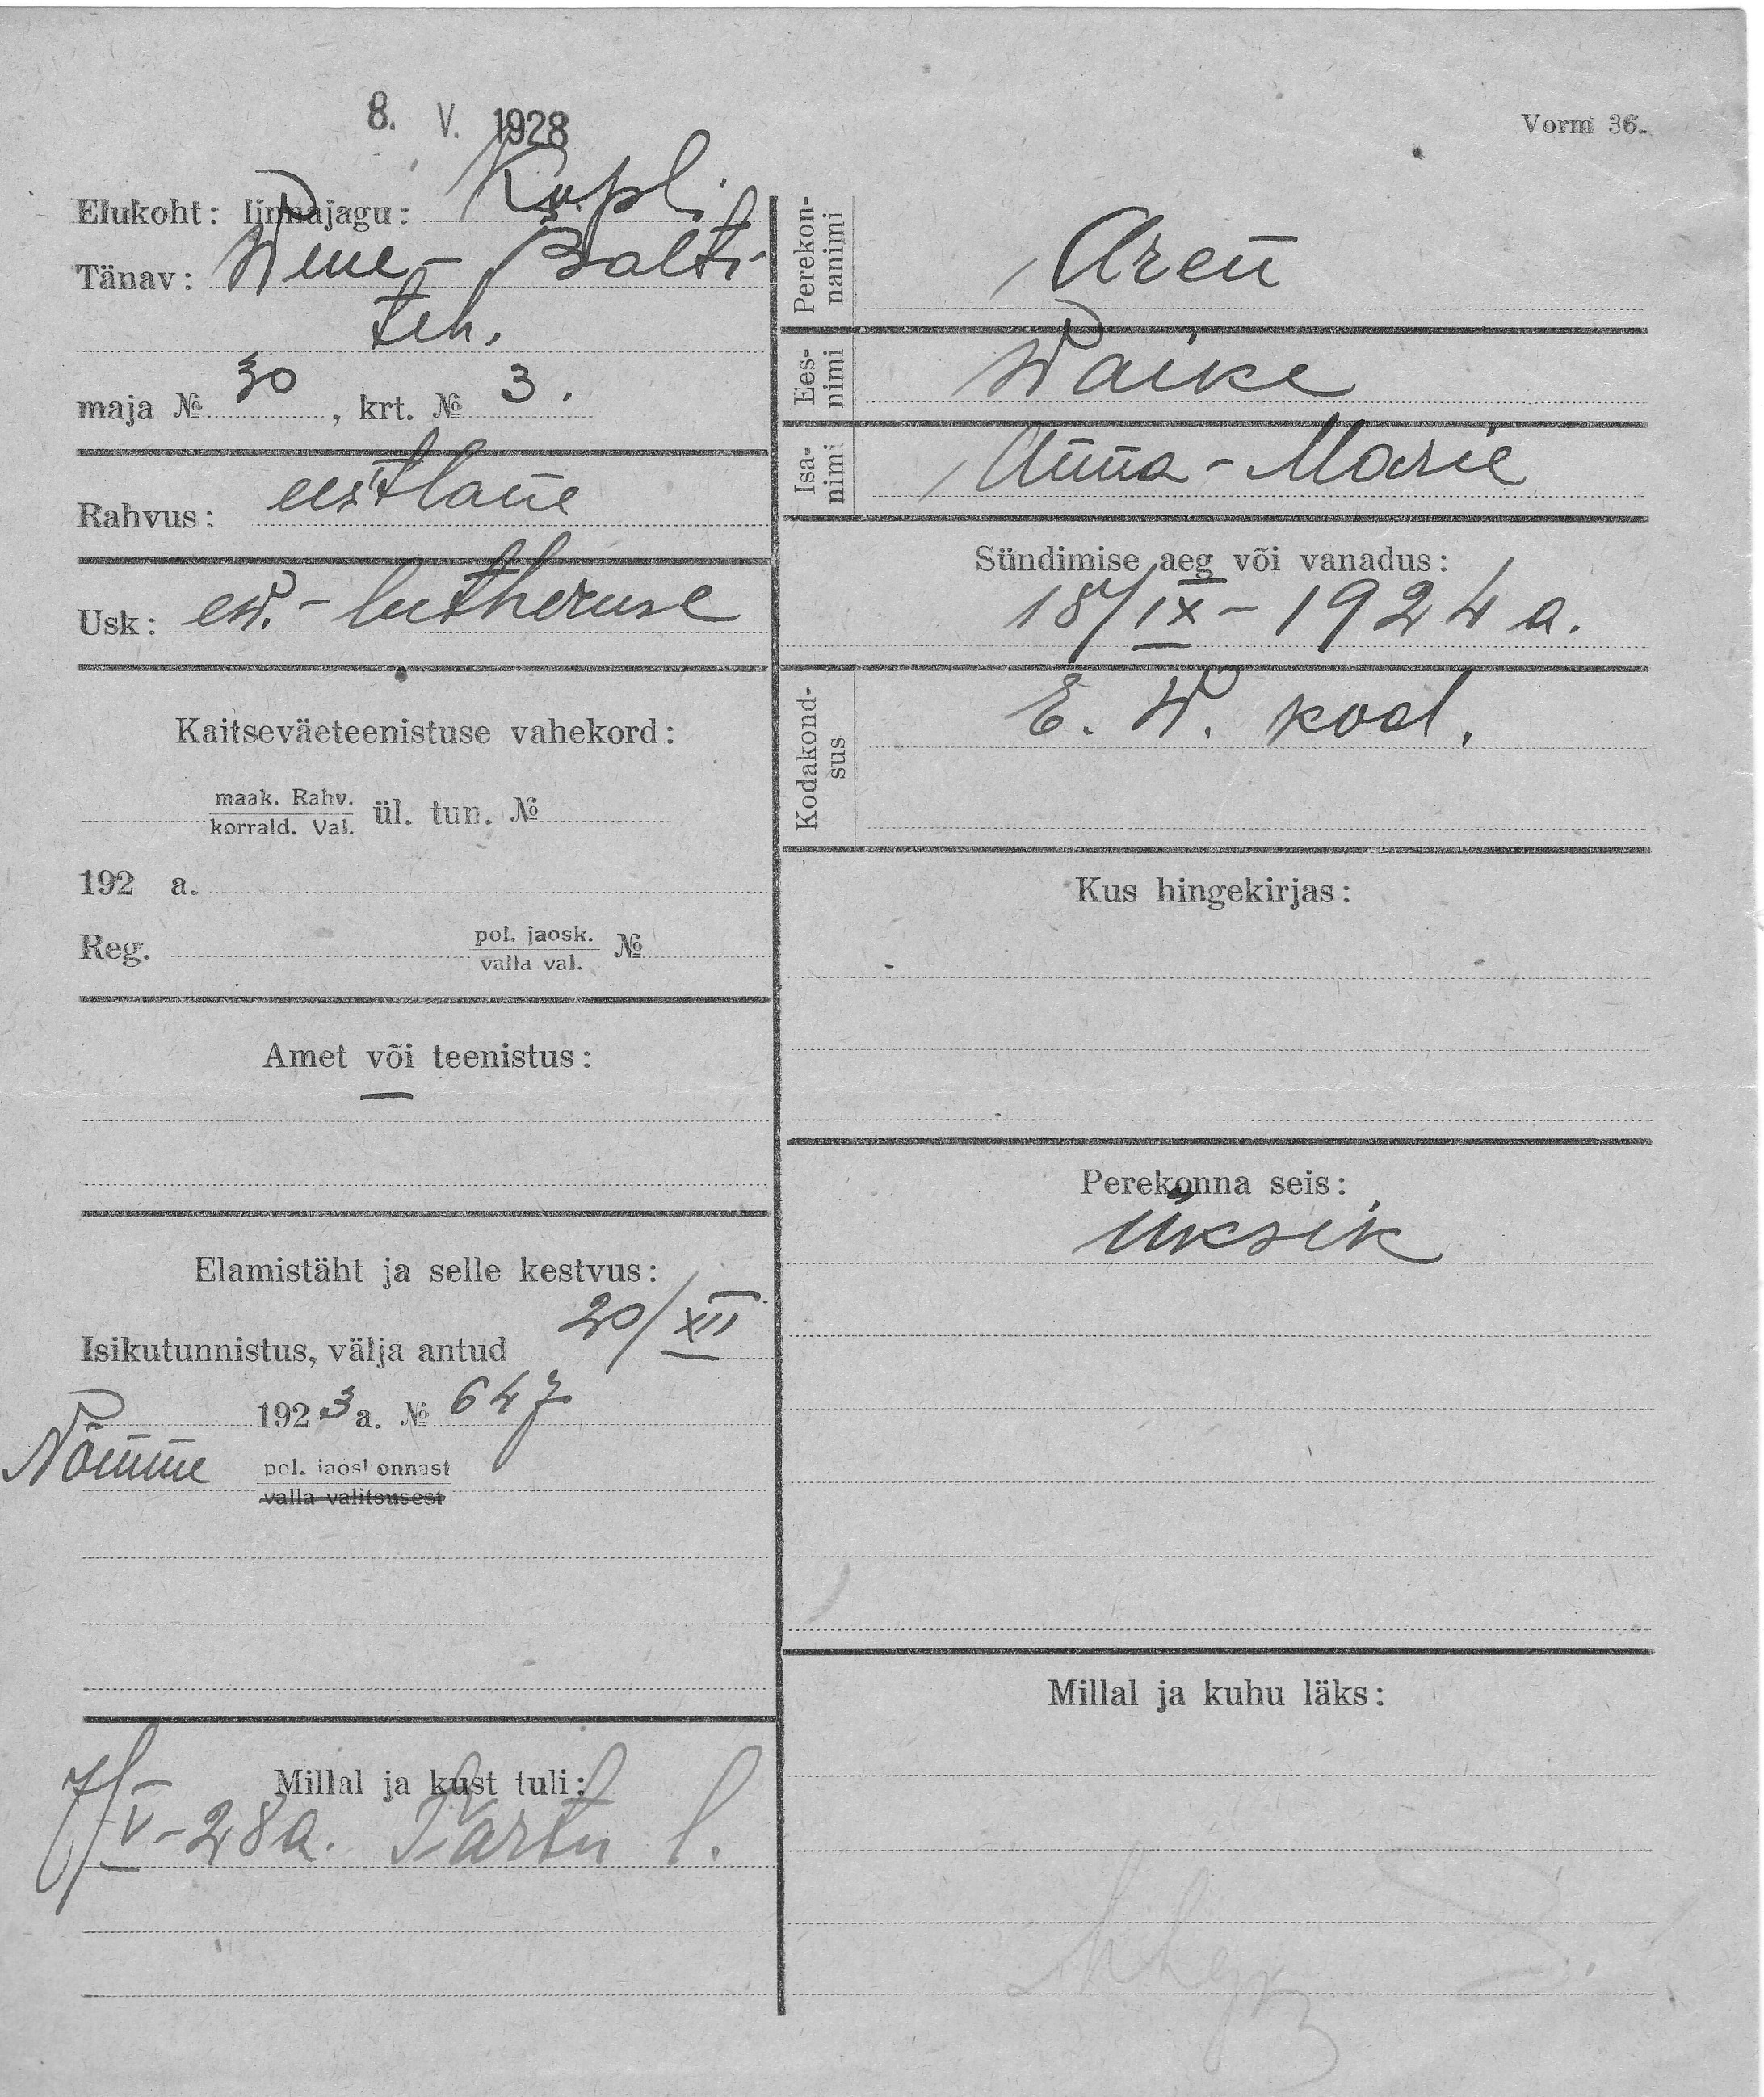 8. V. 1928
Vorm 36.
Elukoht: linnajagu: Kopli
Tänav: Wene-Balti
teh.
maja № 30, krt. № 3.
Rahvus: eestlane
Usk: ew.-lutheruse
Kaitseväeteenistuse vahekord:
maak. Rahv.
korrald. Val. ül. tun. №
192 a.
Reg. pol. jaosk. №
valla val.
Amet või teenistus:
—
Elamistäht ja selle kestvus:
Isikutunnistus, välja antud 20/XII
1923 a. № 647
Nõmme pol. jaoskonnast
valla valitsusest
Millal ja kust tuli:
7/V-28a. Tartu l.
Perekon-
nanimi Aren
Ees-
nimi Waike
Isa-
nimi Anna-Marie
Sündimise aeg või vanadus:
18/IX-1924 a.
Kodakond-
sus E. W. kod.
Kus hingekirjas:
Perekonna seis:
üksik
Millal ja kuhu läks: